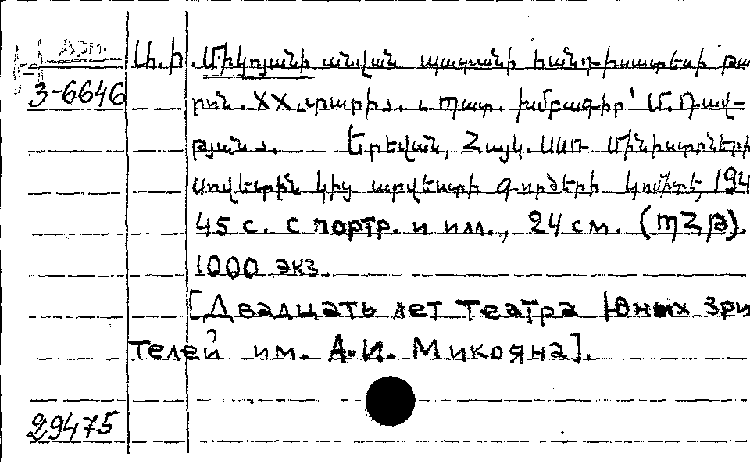 Арм.
Ա.Ի. Միկոյանի անվան պատանի հանդիսատեսի թա
3-6646
րոն. XX տարի. Պատ. խմբագիր՝ Մ. Դավ-
թյան. Երևան, Հայկ. ՍՍՌ Մինիստրների
սովետին կից արվեստի գործերի կոմիտե, 194
45 с. с портр. и илл., 24 см. (ՊՀԹ).
1000 экз.
[Двадцать лет театра Юных зри
телей им. А.И. Микояна].
29475